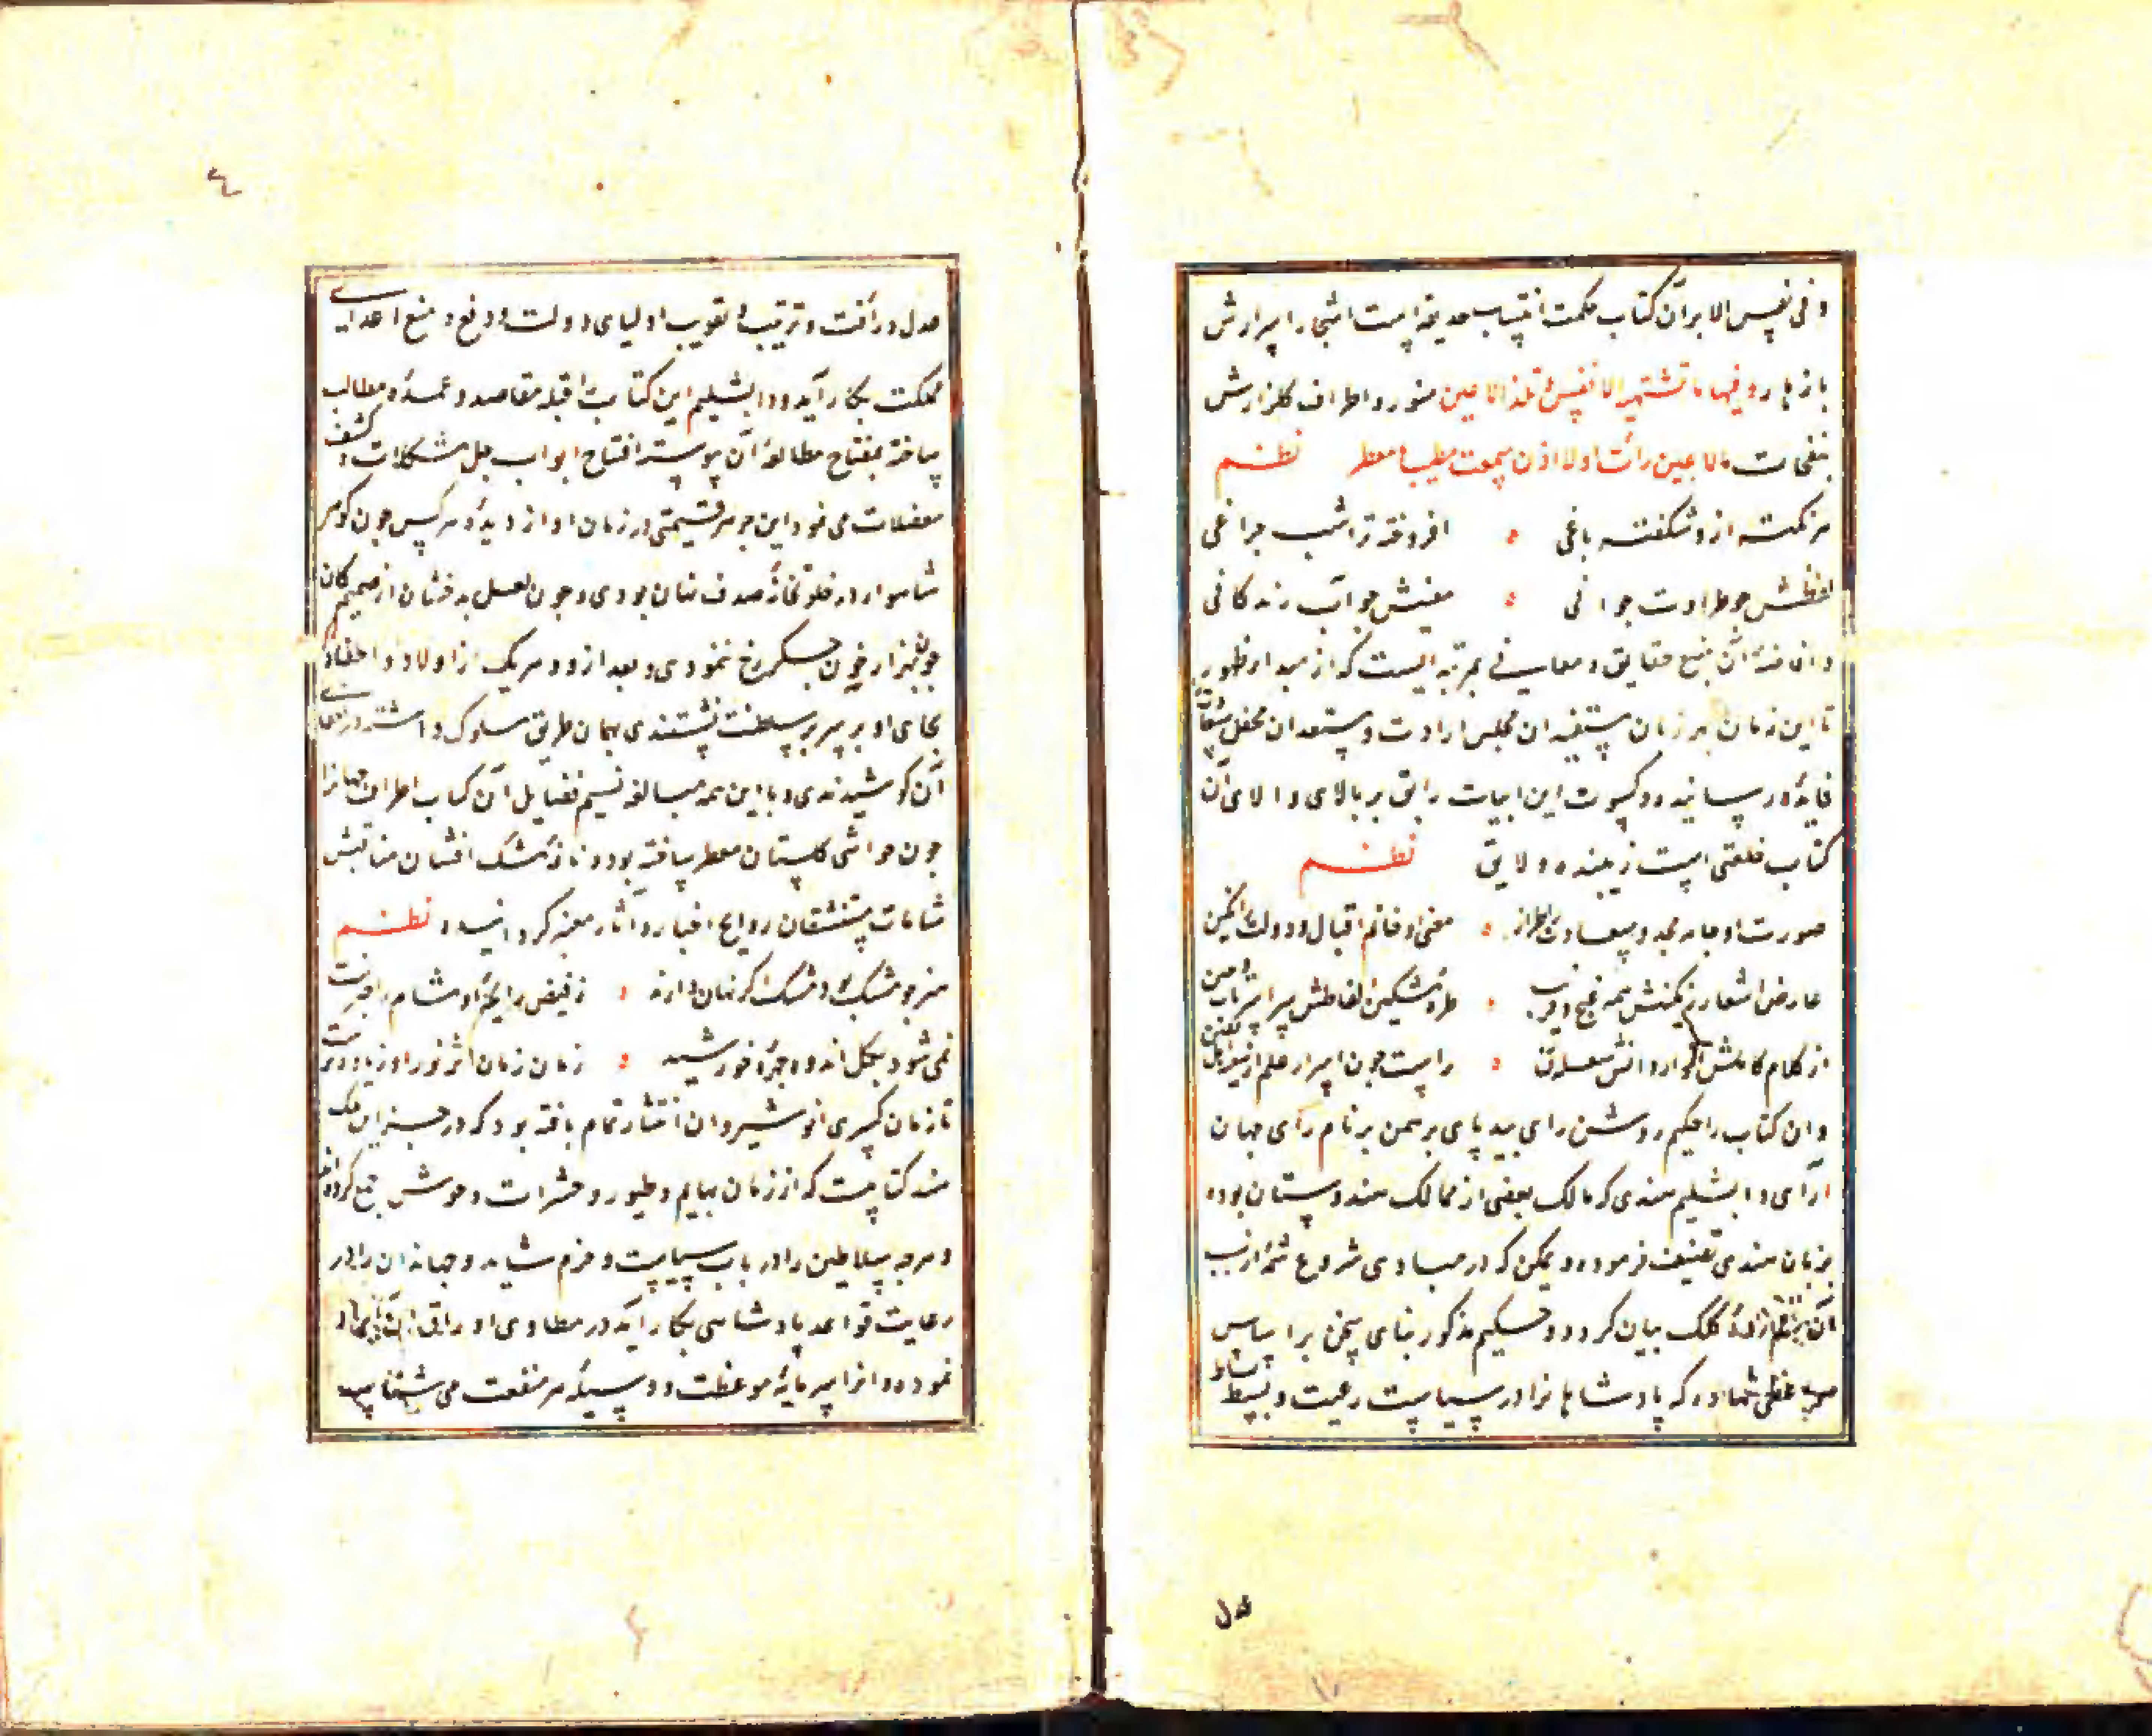 و فی نفس الامر آن کتاب حکمت انتساب حدیقه ایست اشجار اسرارش
بازهار و فیها ما تشتهیه الانفس و تلذ الاعین منور و اطراف گلزارش
بنفحات مالا عین رأت و لا اذن سمعت مطیب و معطر نظم
هر نکته ازو شکفته باغی افروخته تر از شب چراغی
لفظش چو طراوت جوانی معنیش چو آب زندگانی
و افاضهٔ آن منبع حقایق و معانی بمرتبه ایست که از مبداء ظهور
تا این زمان هر زمان مستفیدان مجلس ارادت و مستعدان محفل
فایده رسانیده و کسوت این ابیات رایق بر بالای والای آن
کتاب خلعتی است زیبنده و لایق نظم
صورت او جامه مجد و سعادت را طراز معنی او خاتم اقبال و دولت را نگین
عارض اشعار رنگینش همه غنج و فریب طره مشکین الفاظش سراسر تاب و چین
از کلام کاملش انوار دانش مقتبس راست چون اسرار علم از
و ان کتاب را حکیم روشن رای بیدپای برهمن بر نام رای جهان
آرای دابشلیم هندی که مالک بعضی از ممالک هندوستان بوده
بزبان هندی تصنیف فرموده و یمکن که در مبادی شروع شمه از سبب
آن کلک بیان کردد و حکیم مذکور بنای سخن بر اساس
موعظی نهاده که پادشاهانرا در سیاست رعیت و بسط بساط
عدل
عدل و رأفت و تربیت و تقویت اولیای دولت و دفع و منع اعدای
مملکت بکار آید و دابشلیم این کتاب را قبله مقاصد و عمده مطالب
ساخته بمفتاح مطالعهٔ آن پیوسته افتتاح ابواب حل مشکلات و کشف
معضلات می نمود و این جوهر قیمتی در زمان او از دیدهٔ هر کس چون گوهر
شاهوار در خلوتخانهٔ صدف نهان بودی و چون لعل بدخشان از صمیم کان
جز بهزار خون جگر رخ ننمودی و بعد ازو هر یک از اولاد و احفاد
بجای او بر سریر سلطنت نشستندی بهمان طریق سلوک داشته در اخفای
آن کوشیدندی و با این همه مبالغه نسیم فضایل آن کتاب اطراف جهانرا
چون حواشی گلستان معطر ساخته بود و نافهٔ مشک افشان مناقبش
شامات مستنشقان روایح اخبار و آثار معنبر گردانیده نظم
هنر چو مشک بود مشک اگر نهان دارند ز فیض رایحه او مشام را خبرست
نمی شود بگل اندوده چهرهٔ خورشید زمان زمان اثر نور او زیاده ترست
تا زمان کسری انوشیروان انتشار تمام یافته بود که در خزاین ملک
هند کتابیست که از زبان بهایم و طیور و حشرات و وحوش جمع کرده اند
و هر چه سلاطین را در باب سیاست و حزم شاید و جهانداران را در
رعایت قواعد پادشاهی بکار آید در مطاوی اوراق آن ایراد
نموده و انرا سرمایهٔ موعظت و وسیلهٔ هر منفعت می شناسند
٤